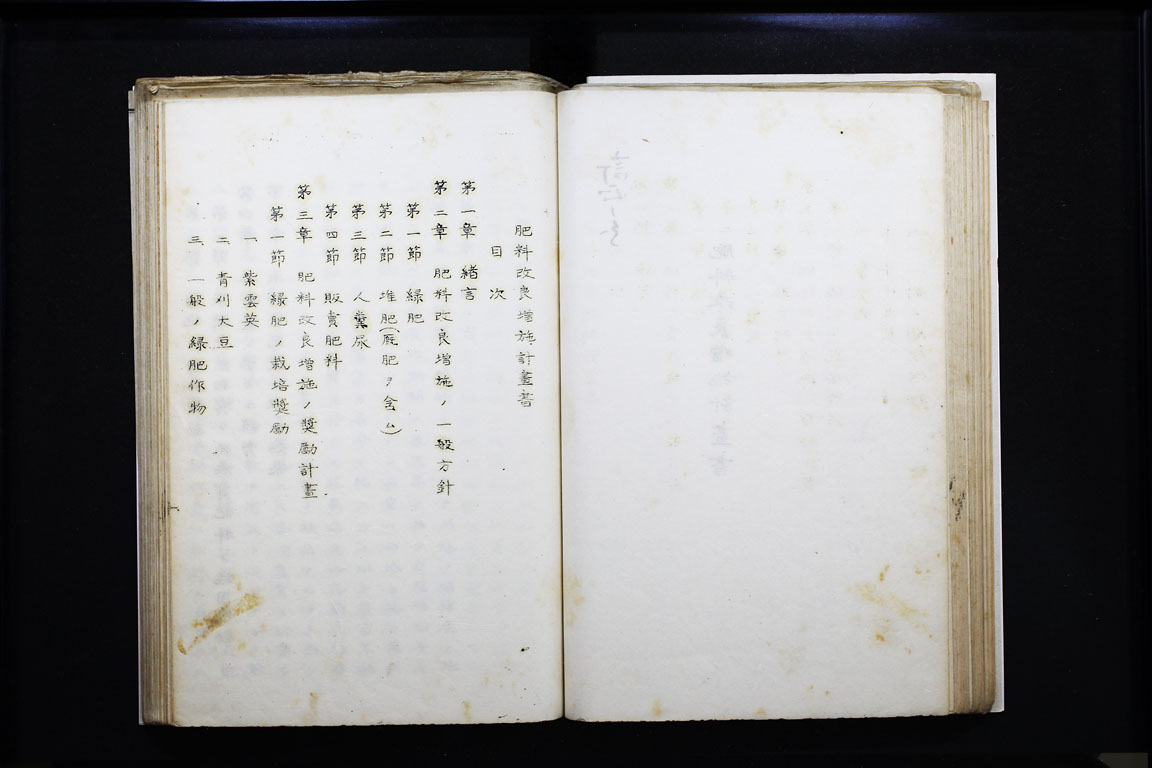 肥料改良增施計畫書
目次
第一章 緒言
第二章 肥料改良增施ノ一般方針
第一節 綠肥
第二節 堆肥(厩肥ヲ含ム)
第三節 人糞尿
第四節 販賣肥料
第三章 肥料改良增施ノ獎勵計畫
第一節 綠肥ノ栽培獎勵
一、紫雲英
二、靑刈大豆
三、一般ノ綠肥作物